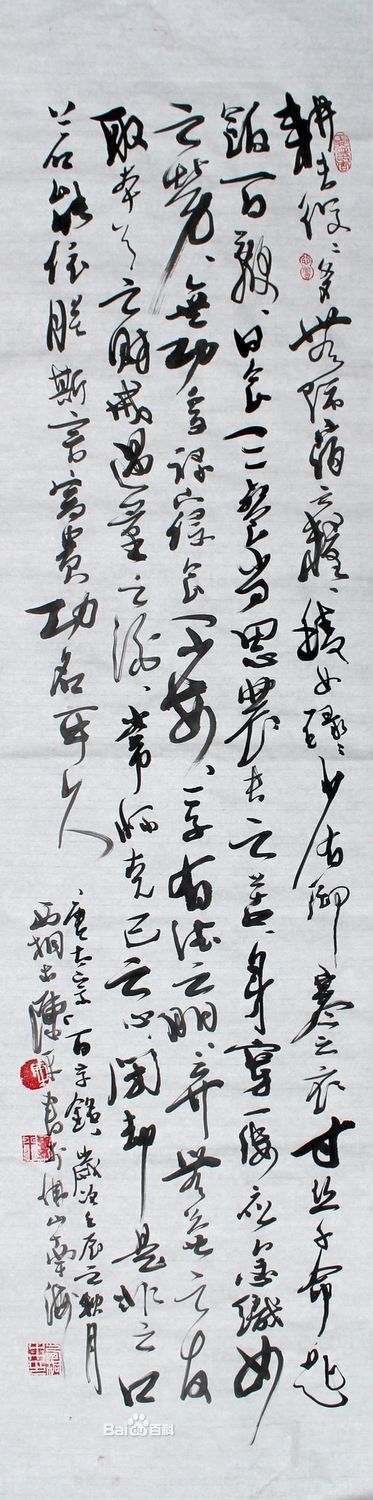 耕夫役役多無隔宿之糧、織女碌碌少有御寒之衣寸丝千命匙
飯百鞭、日食三餐當思農夫之苦、身穿一縷應念織女
之勞、無功受祿寢食不安、交有德之朋、弃無益之友
取本分之財戒過量之酒、常懷克己之心、閉却是非之口
若能依朕斯言富貴功名可久
唐太宗百字銘歲次壬辰之秋月
西樵陳書於佛山南海
Bai百科